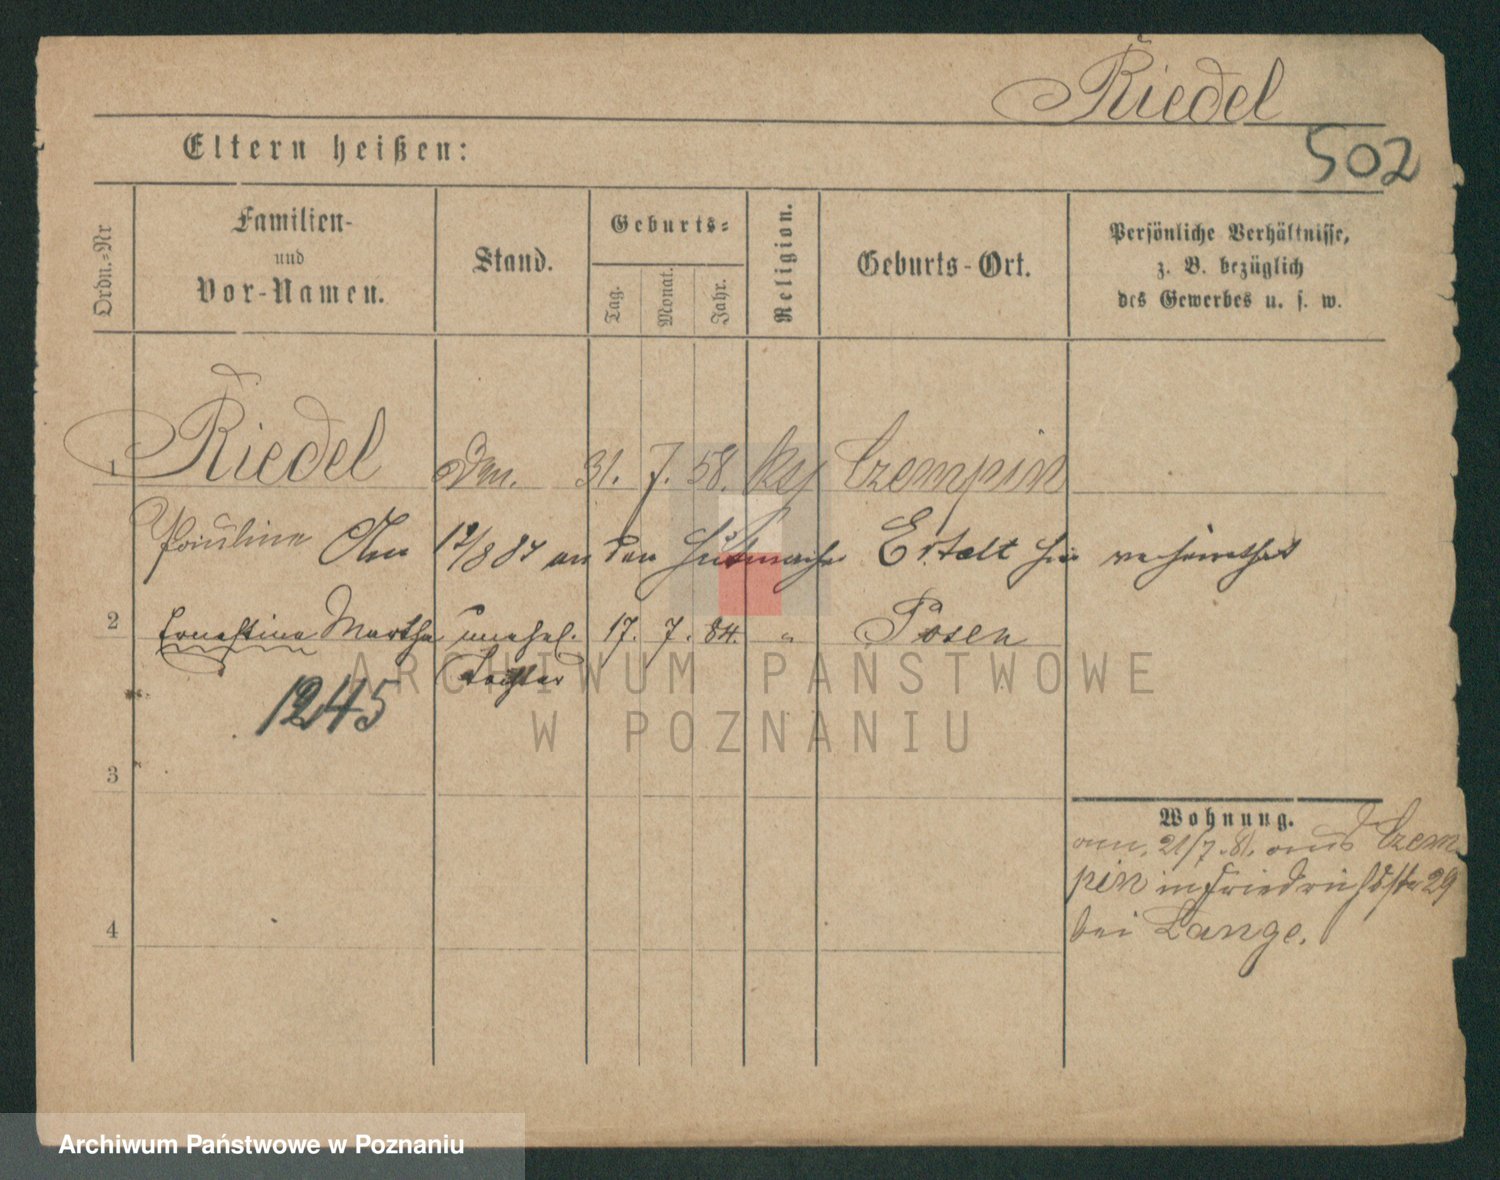 Riedel
502
Eltern heißen:
Ordn.=Nr
Familien-
und
Vor-Namen.
Stand.
Geburts=
Tag.
Monat.
Jahr.
Religion.
Geburts-Ort.
Persönliche Verhältnisse,
z. B. bezüglich
des Gewerbes u. s. w.
1 Riedel 31. 7. 58. Czempin
Pauline Am 12/8 87 an den Hutmacher Ertelt hier verheirathet
2 Ernestine Martha unehel. 17. 7. 84. " Posen
Tochter
1245
ARCHIWUM PAŃSTWOWE
W POZNANIU
3
Wohnung.
am 21/7. 81. aus Czem
pin in Friedrichstr 29
bei Lange.
4
Archiwum Państwowe w Poznaniu